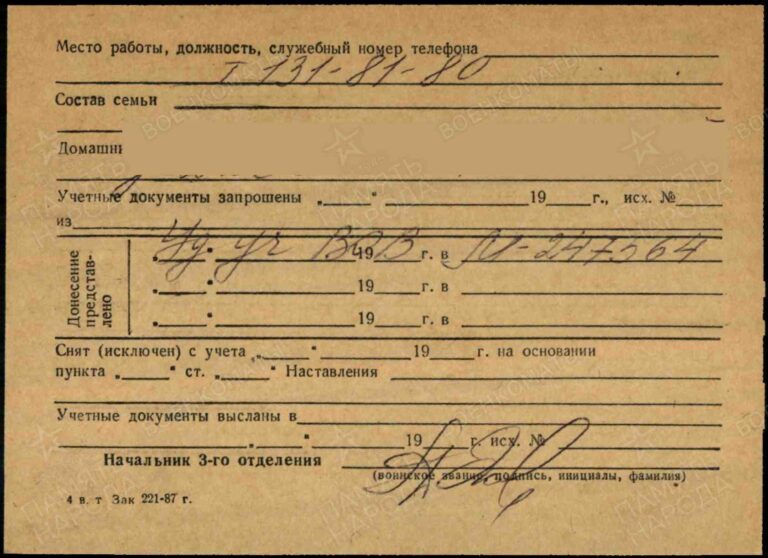 Место работы, должность, служебный номер телефона
т 131-81-80
Состав семьи
Домашн
Учетные документы запрошены „ " 19 г., исх. №
из
Донесение представ-
лено
„Уд." уч ВОВ 19 г. в 247564
„ " 19 г. в
„ " 19 г. в
Снят (исключен) с учета „ " 19 г. на основании
пункта „ " ст. „ " Наставления
Учетные документы высланы в
„ " 19 г. исх. №
Начальник 3-го отделения
(воинское звание, подпись, инициалы, фамилия)
4 в. т Зак 221-87 г.
ПАМЯТЬ НАРОДА
ВОЕНКОМАТЫ